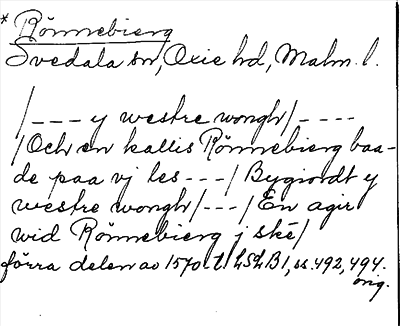 * Rönnebierg
Svedala sn, Oxie hd, Malm. l.
/--- y westre wongh/----
/Och en kallis Rönnebierg baa-
de paa vj les ---/ Bygiordt y
westre wongh/---/ En agir
wid Rönnebierg j ské/
förra delen av 1570-t. LSLB1, ss. 492, 494.
orig.